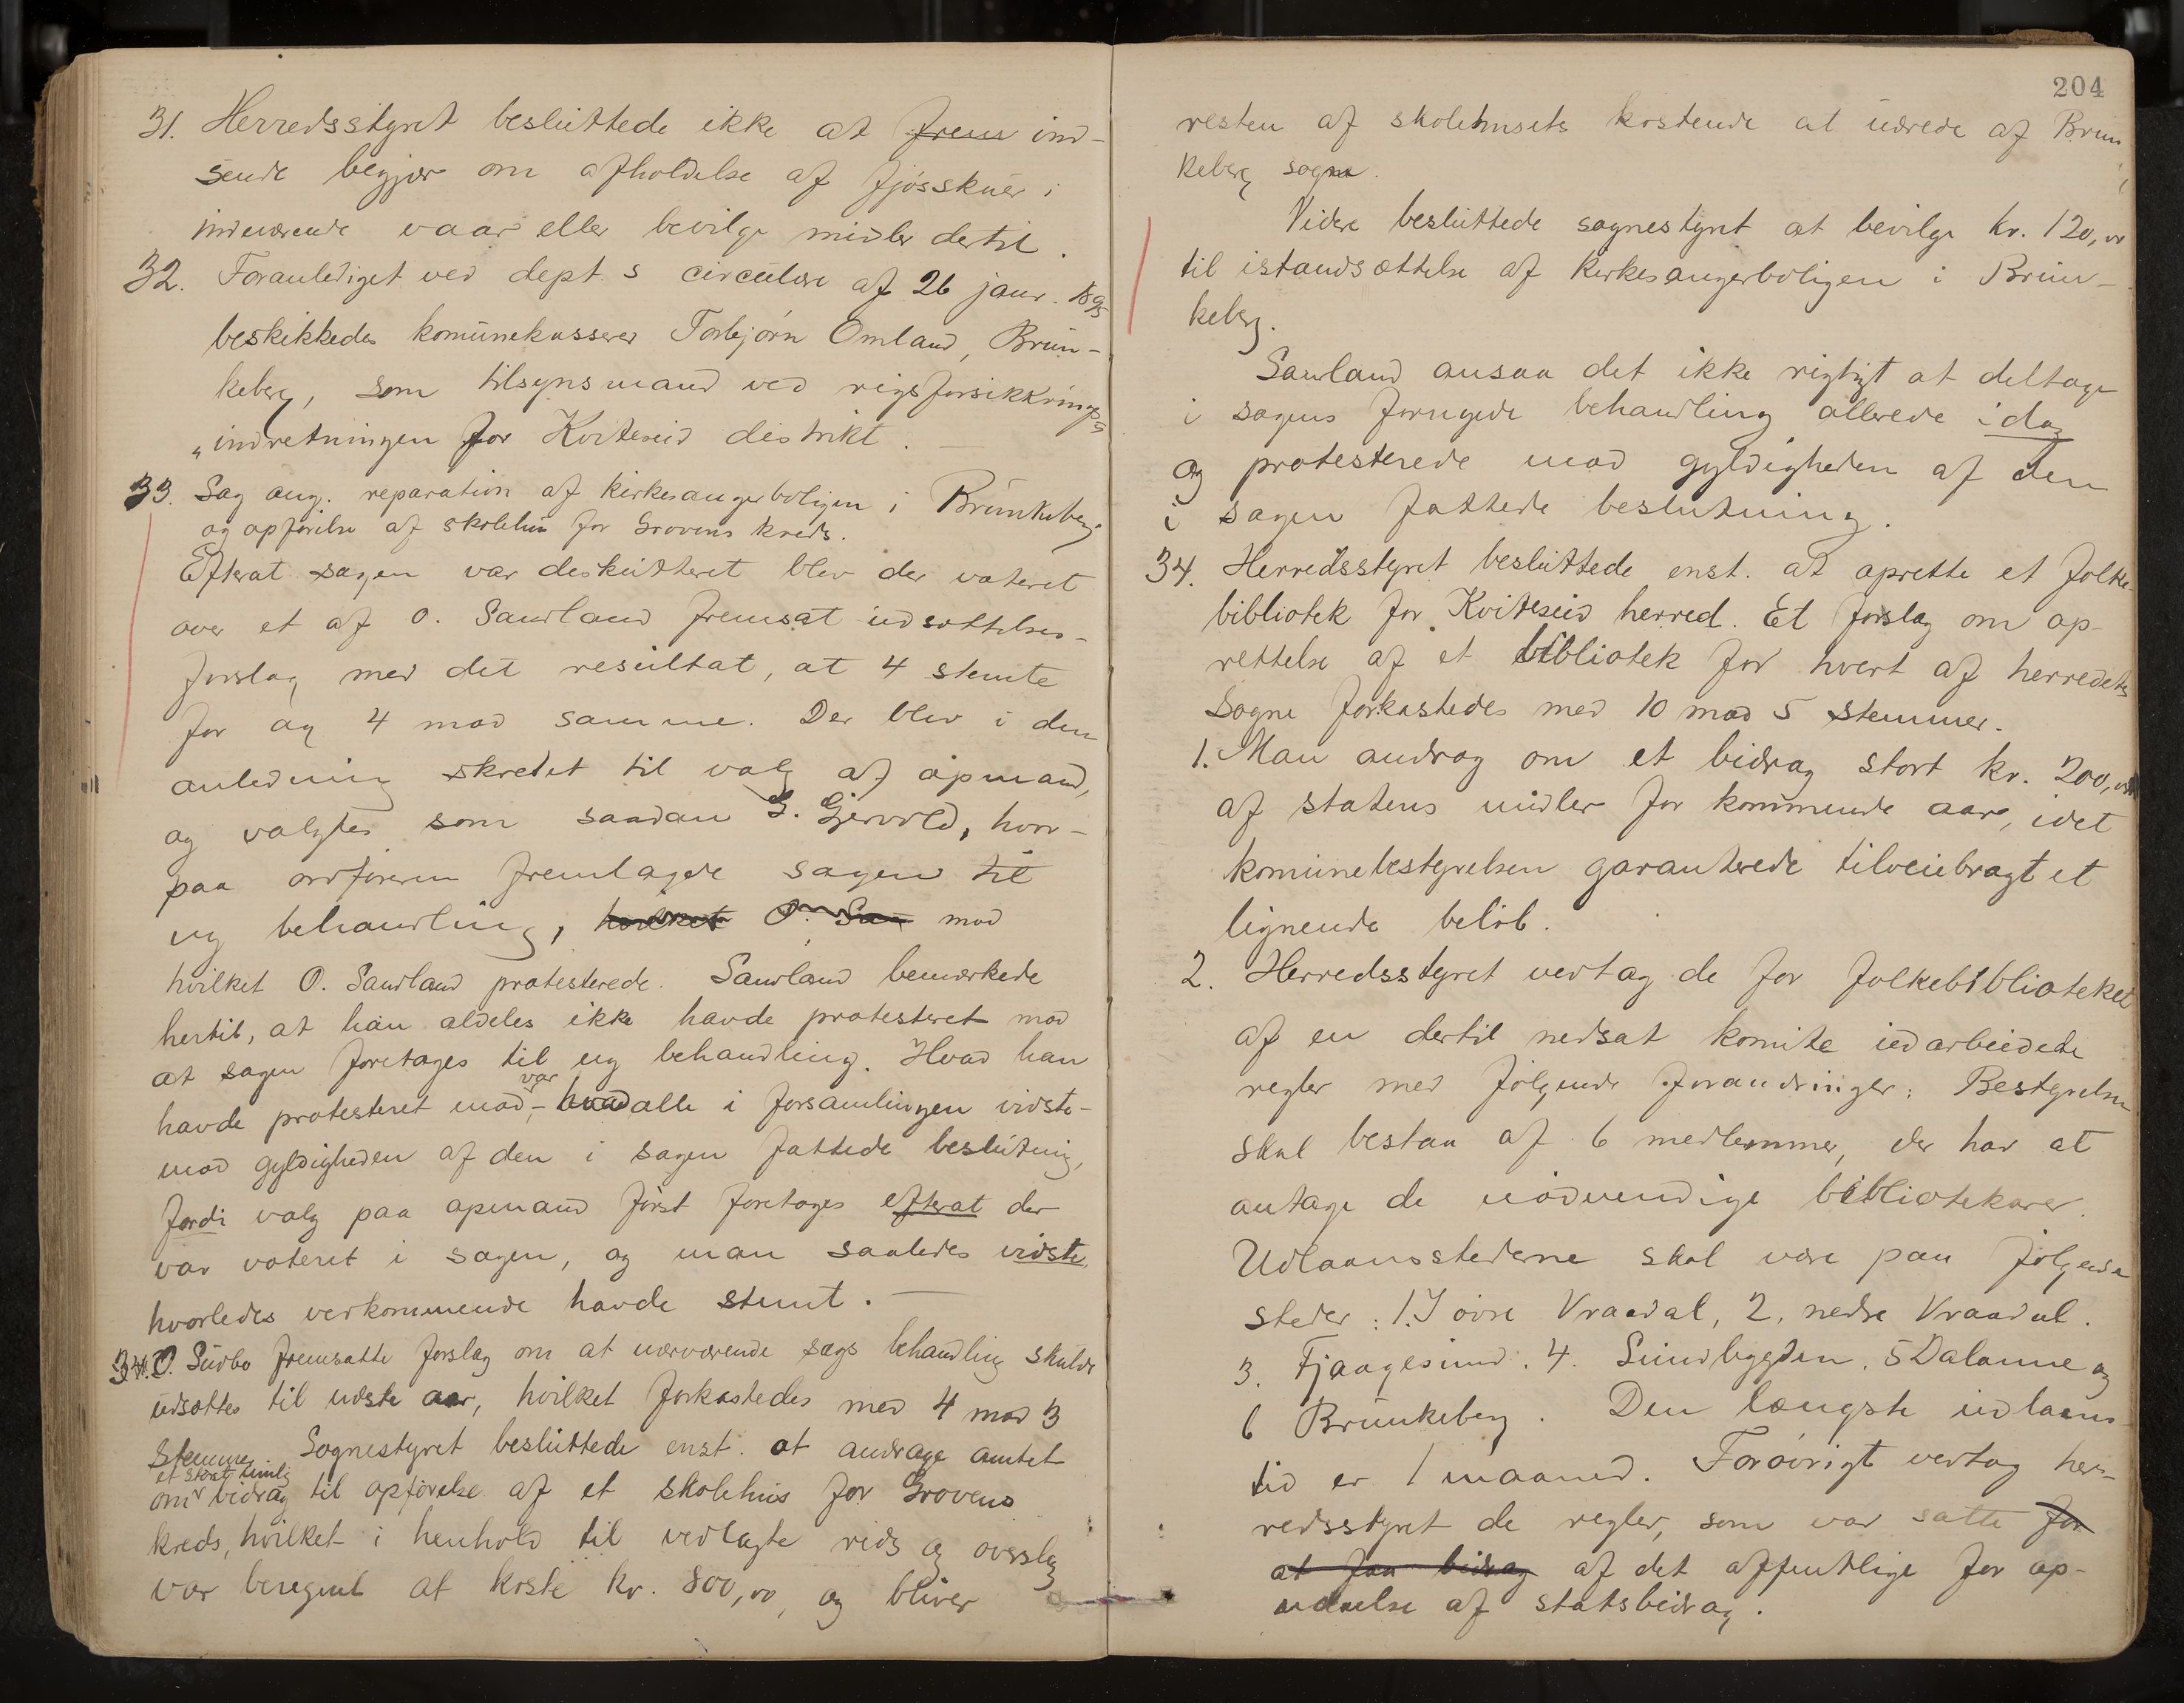 31. Herredsstyret besluttede ikke at frem ind-
sende begjær om afholdelse af fjøsskuer i
indeværende vaar eller bevilge midler dertil.
32. Foranlediget ved dept s circulære af 26 janr. 1895
beskikkedes komunekasserer Torbjørn Omland, Brun-
keberg, som tilsynsmand ved rigsforsikkrings-
„indretningen for Kviteseid distrikt.
33. Sag ang. reparation af kirkesangerboligen i Brunkeberg
og opførelse af skolehus for Grovens kreds.
Efterat sagen var deskutteret blev der voteret
over et af O. Saurland fremsat udsættelses-
forslag med det resultat, at 4 stemte
for og 4 mod samme. Der blev i den
anledning skredet til valg af opmand,
og valgtes som saadan G. Gjervold, hvor-
paa ordføreren fremlagde sagen til
ny behandling, hvilket O. Sau mod
hvilket O. Saurland protesterede. Saurland bemærkede
hertil, at han aldeles ikke havde protesteret mod
at sagen foretages til ny behandling. Hvad han
havde protesteret mod, var - hvad alle i forsamlingen vidste -
mod gyldigheden af den i sagen fattede beslutning,
fordi valg paa opmand først foretages efterat der
var voteret i sagen, og man saaledes vidste
hvorledes vedkommende havde stemt. —
34. O. Sudbø fremsatte forslag om at nærværende sags behandling skulde
udsættes til næste aar, hvilket forkastedes med 4 mod 3
stemmer. Sognestyret besluttede enst. at andrage amtet
om et stort bidrag til opførelse af et skolehus for Grovens
kreds, hvilket i henhold til vedlagte rids og overslag
var beregnet at koste kr. 800,00, og bliver
204
resten af skolehusets kostende at udrede af Brun
keberg sogn.
Videre besluttede sognestyret at bevilge kr. 120,00
til istandsættelse af kirkesangerboligen i Brun-
keberg.
Saurland ansaa det ikke rigtigt at deltage
i sagens fornyede behandling allerede idag
og protesterede mod gyldigheden af den
i sagen fattede beslutning.
34. Herredsstyret besluttede enst. at oprette et folke-
bibliotek for Kviteseid herred. Et forslag om op-
rettelse af et bibliotek for hvert af herredets
sogne forkastedes med 10 mod 5 stemmer.
1. Man androg om et bidrag stort kr. 200,00
af statens midler for kommende aar, idet
komunebestyrelsen garanterede tilveiebragt et
lignende beløb.
2. Herredsstyret vedtog de for folkebiblioteket
af en dertil nedsat komite udarbeidede
regler med følgende forandringer: Bestyrelsen
skal bestaa af 6 medlemmer, der har at
antage de nødvendige bibliotekarer.
Udlaansstederne skal være paa følgende
steder: 1. I øvre Vraadal, 2. nedre Vraadal.
3. Fjaagesund. 4. Sundbygden. 5 Dalanne og
6 Brunkeberg. Den længste udlaans
tid er 1 maaned. Forøvrigt vedtog her-
redsstyret de regler, som var satte for
at faa bidrag af det offentlige for op-
naaelse af statsbidrag.